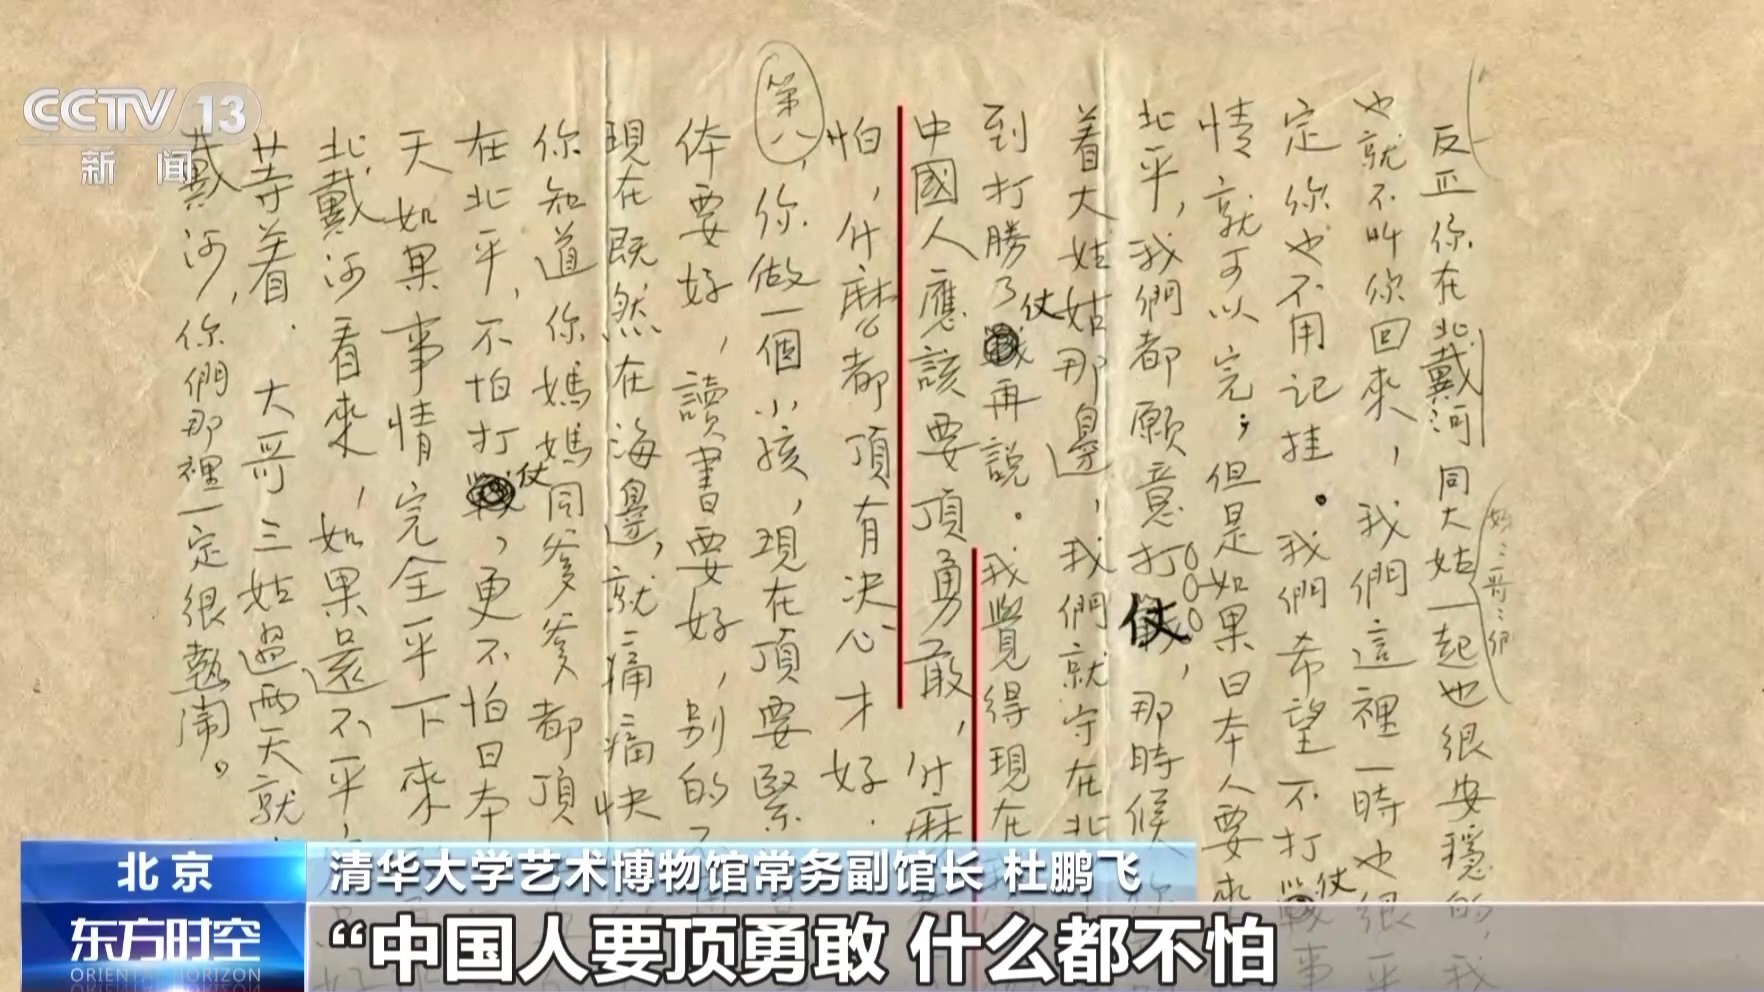 CCTV 13
新闻
反正你在北戴河同大姑一起也很安穩的,我
也就不叫你回來,我們這裡一時也很平
定你也不用记挂。我們希望不打仗事
情就可以完;但是如果日本人要來
北平,我們都願意打仗,那時候你
着大姑姑那邊,我們就守在北
到打勝了仗再説。我覺得現在
中國人應該要頂勇敢,什麽
怕,什麽都頂有决心才好.
第八,你做一個小孩,現在頂要緊
体要好,讀書要好,别的
現在既然在海邊,就痛痛快
你知道你媽媽同爹爹都頂
在北平,不怕打仗,更不怕日本
天如果事情完全平下來
北戴河看來,如果還不平
廿等着.大哥三姑過兩天就
戴河,你們那裡一定很熱鬧。
北京
清华大学艺术博物馆常务副馆长 杜鹏飞
东方时空
ORIENTAL HORIZON
“中国人要顶勇敢 什么都不怕